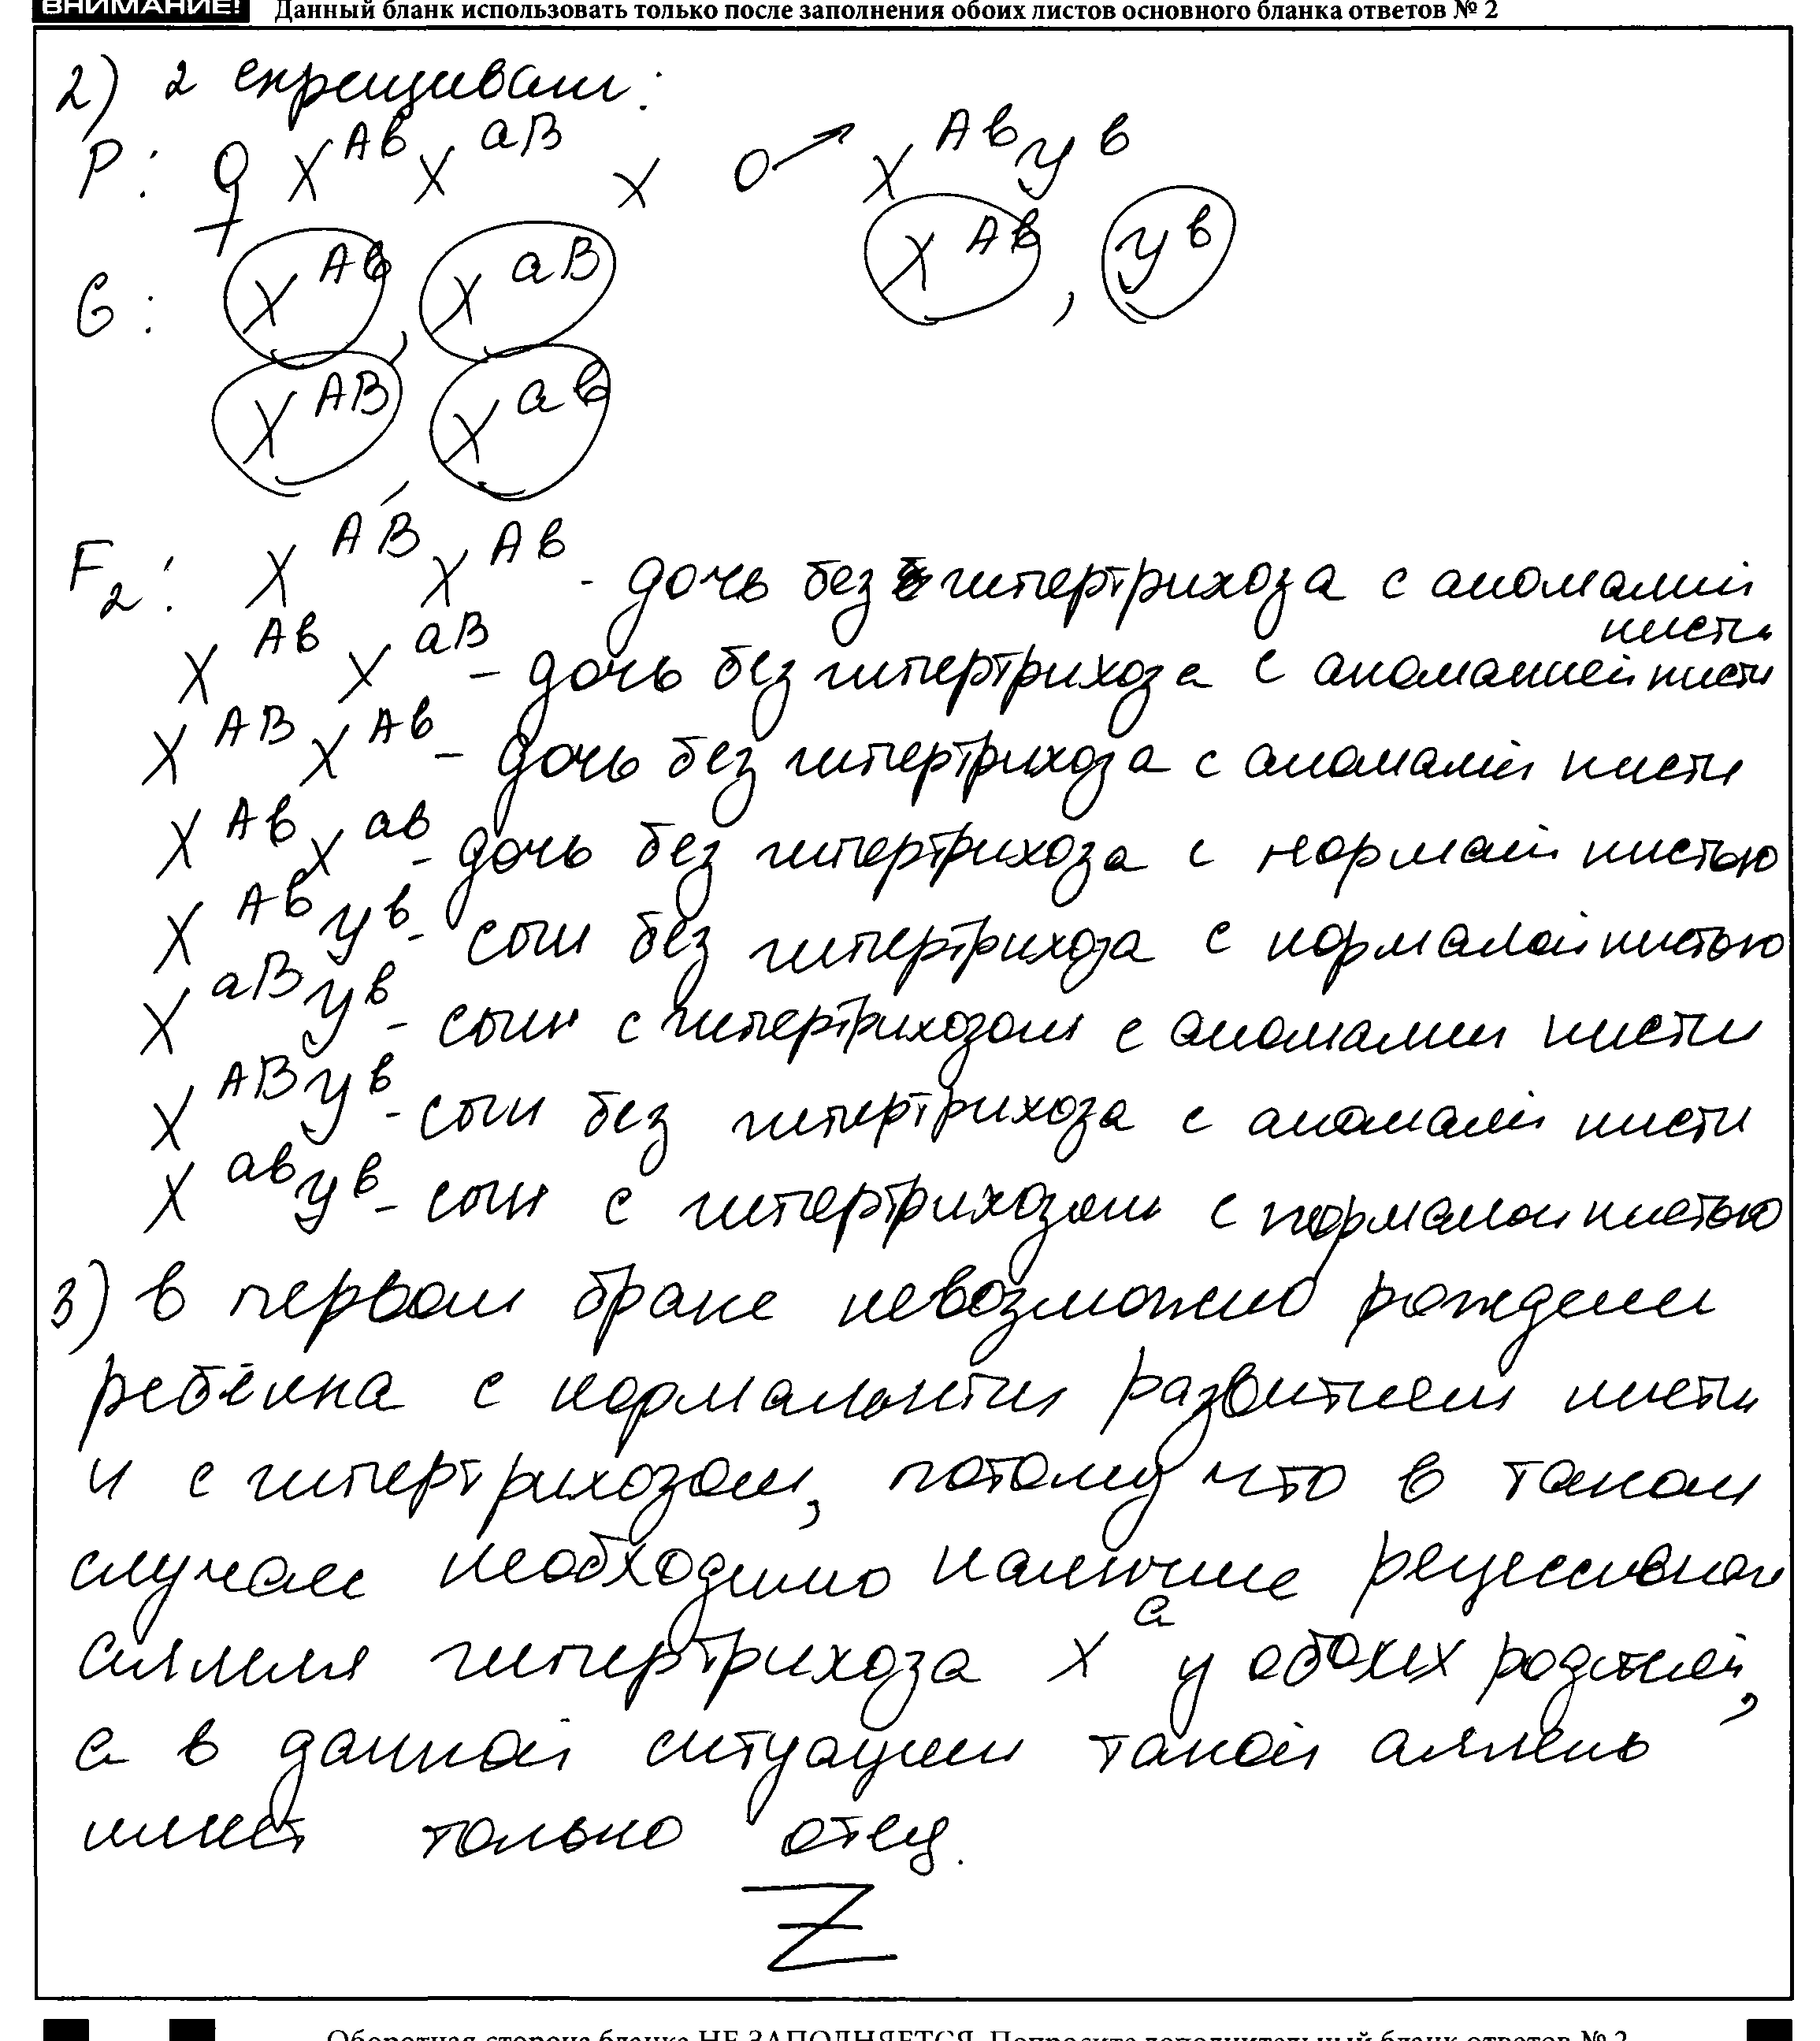 ВНИМАНИЕ! Данный бланк использовать только после заполнения обоих листов основного бланка ответов № 2
2) 2 скрещивани:
P: ♀ X^Aв X^aB x ♂ X^Aв y^в
G: X^Aв, X^aB X^Aв, y^в
X^AB, X^aв
F₂: X^AB X^Aв - дочь без гипертрихоза с аномалий
кисти
X^Aв X^aB - дочь без гипертрихоза с аномалией кисти
X^AB X^Aв - дочь без гипертрихоза с аномалий кисти
X^Aв X^aв - дочь без гипертрихоза с нормалй кистью
X^Aв y^в - сын без гипертрихоза с нормалой кистью
X^aB y^в - сын с гипертрихозом с аномалии кисти
X^AB y^в - сын без гипертрихоза с аномалий кисти
X^aв y^в - сын с гипертрихозом с нормалой кистью
3) в первом браке невозможно рождени
ребёнка с нормальным развитием кисти
и с гипертрихозом, потому что в таком
случае необходимо наличие рецессивной
аллеля гипертрихоза X^a у обоих родителей,
а в данной ситуации такой аллель
имеет только отец.
Z
Оборотная сторона бланка НЕ ЗАПОЛНЯЕТСЯ. Попросите дополнительный бланк ответов № 2